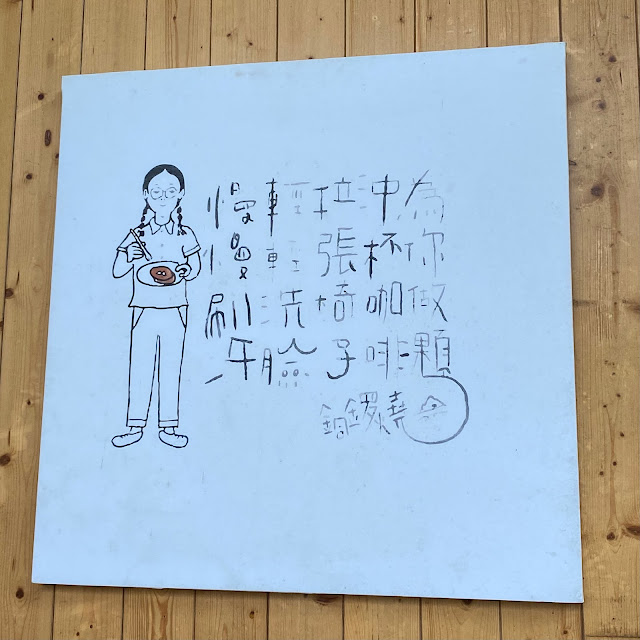 慢慢刷牙
輕輕洗臉
拉張椅子
沖杯咖啡
為你做顆
銅鑼燒